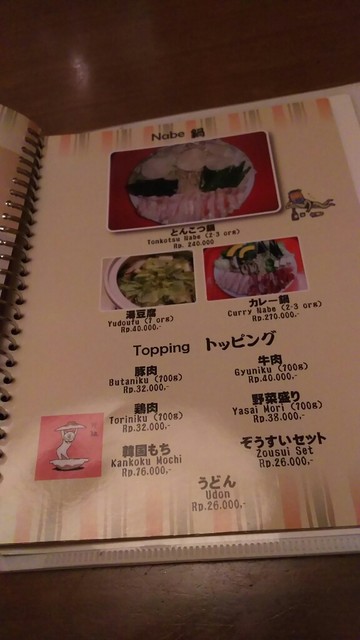 Nabe 鍋
とんこつ鍋
Tonkotsu Nabe (2-3 org)
Rp. 240.000
湯豆腐
Yudoufu (1 org)
Rp.40.000,-
カレー鍋
Curry Nabe (2-3 org)
Rp.270.000,-
Topping トッピング
豚肉
Butaniku (700g)
Rp.32.000,-
牛肉
Gyuniku (700g)
Rp.40.000,-
鶏肉
Toriniku (700g)
Rp.32.000,-
野菜盛り
Yasai Mori (700g)
Rp.38.000,-
韓国もち
Kankoku Mochi
Rp.16.000,-
ぞうすいセット
Zousui Set
Rp.26.000,-
うどん
Udon
Rp.26.000,-